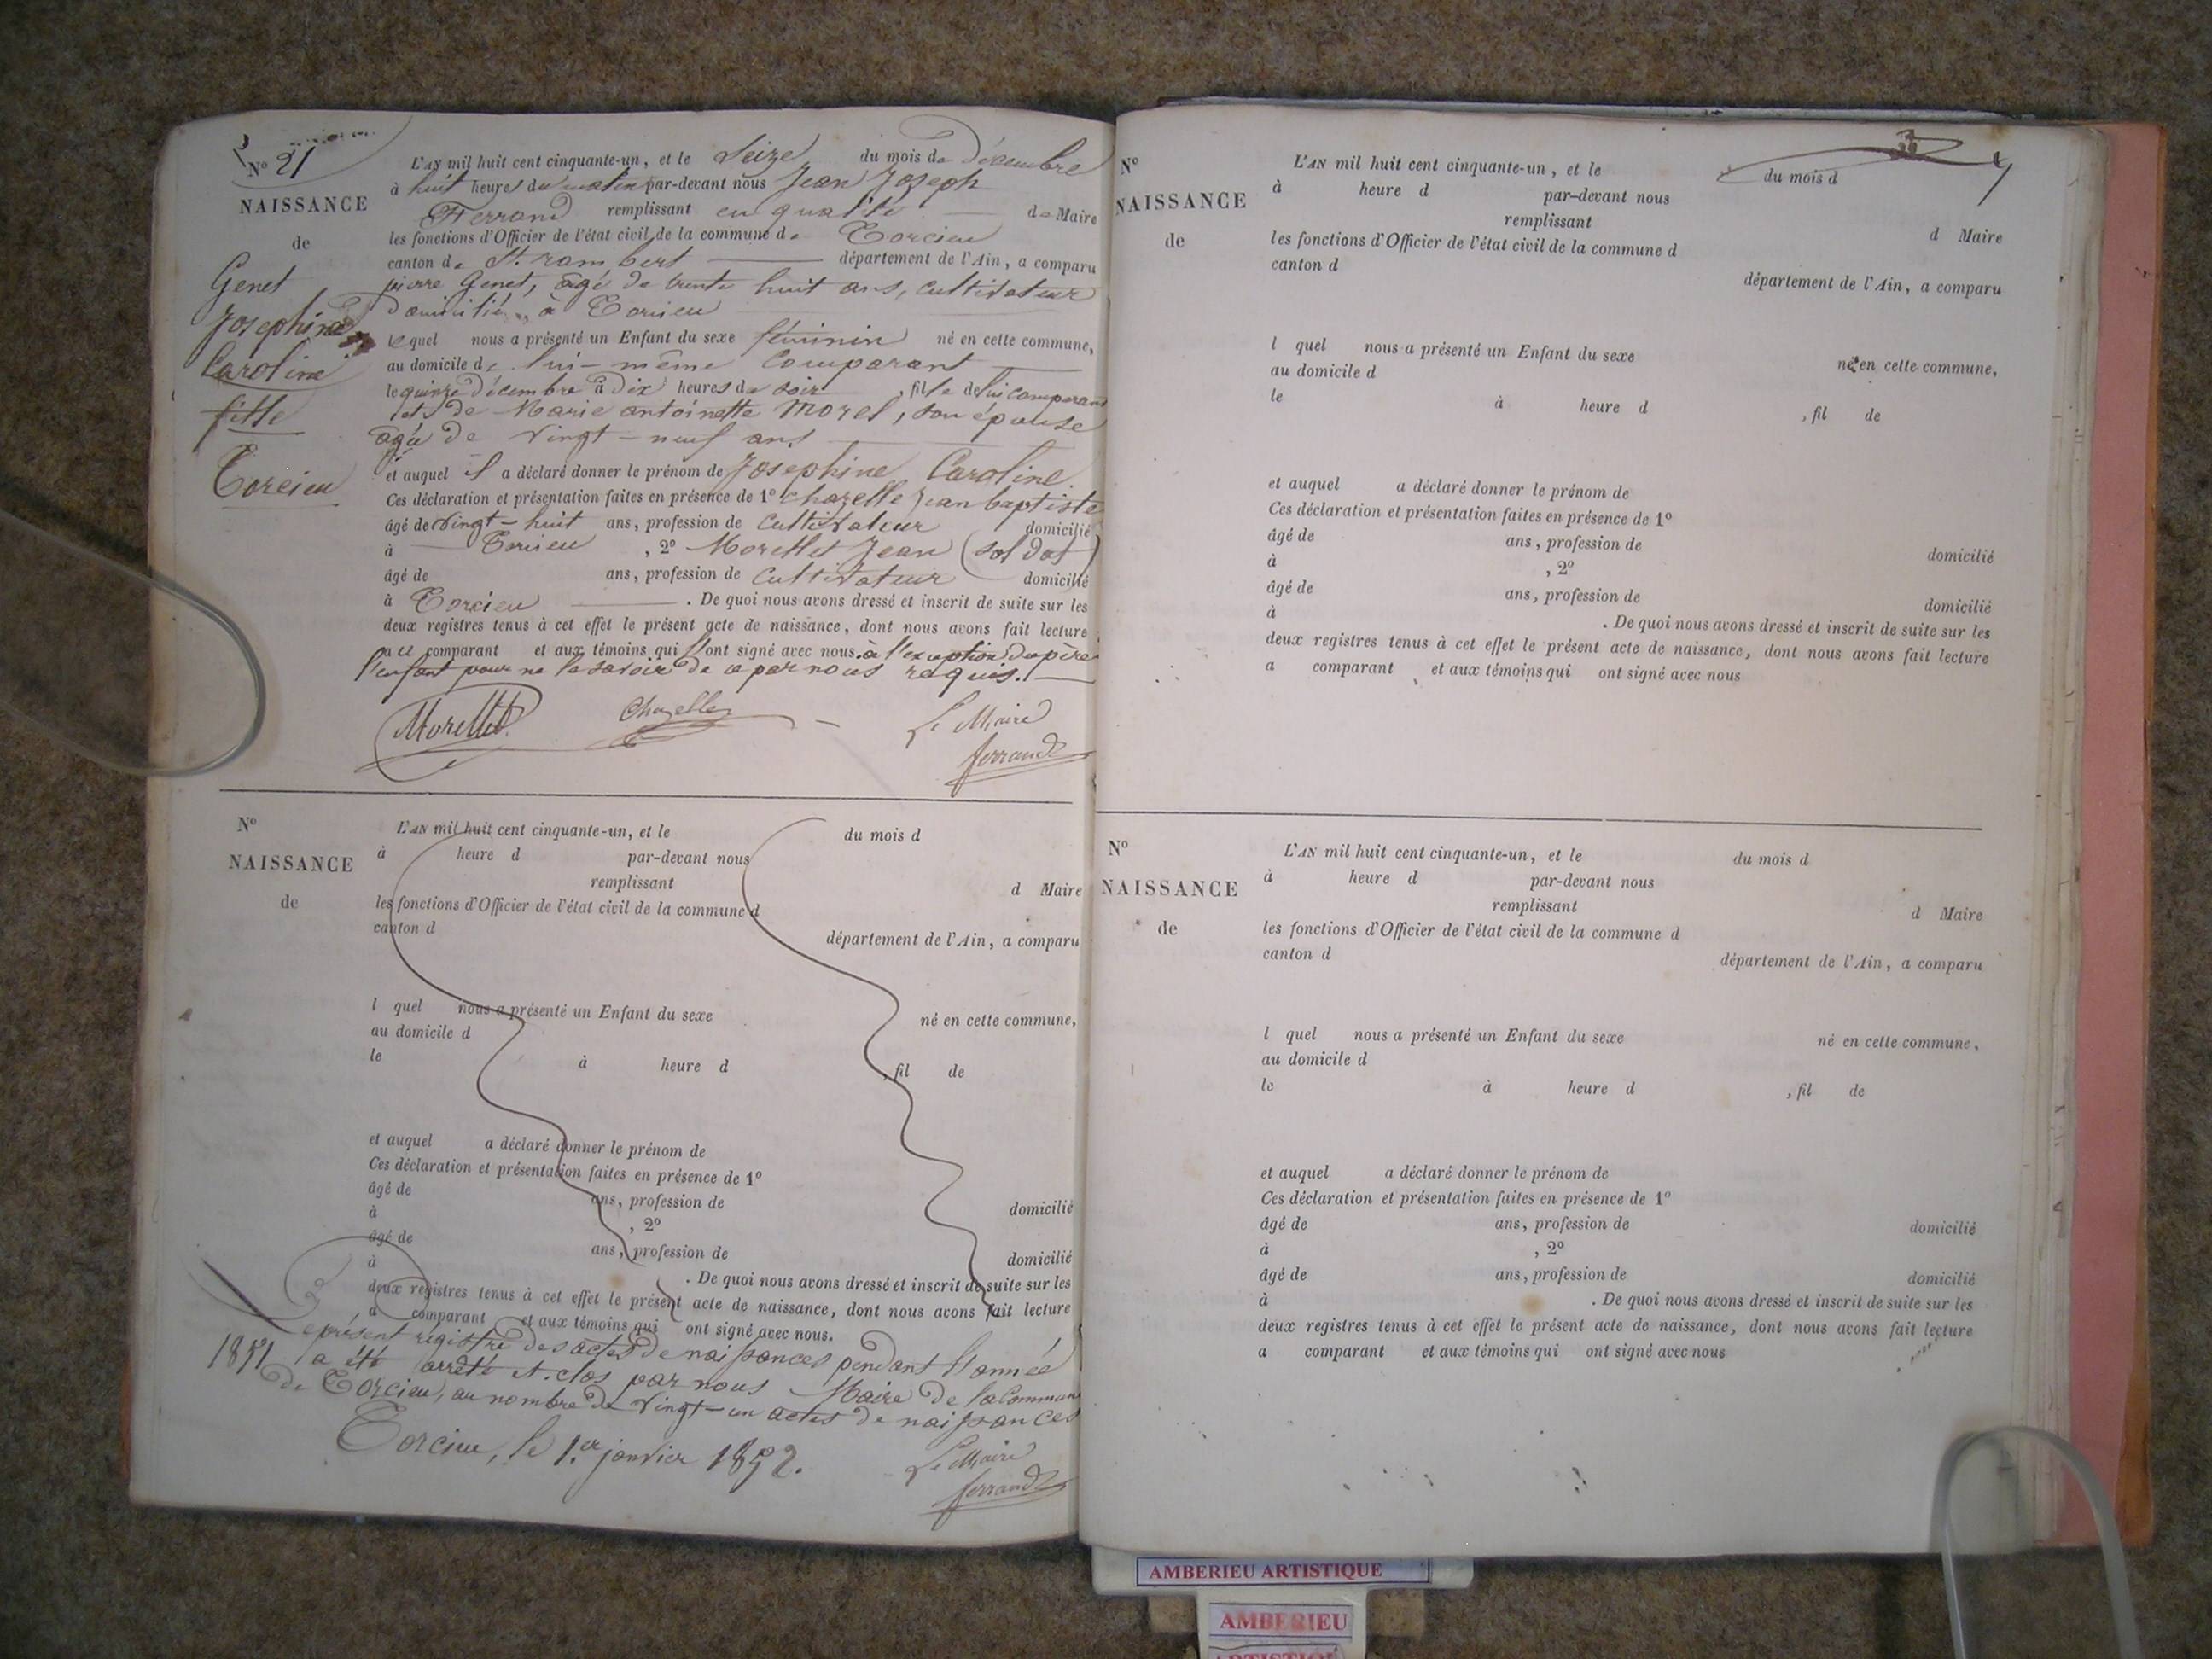 No 21
NAISSANCE
de
Genet
Josephine
Caroline
fille
Torcieu
L'AN mil huit cent cinquante-un, et le Seize du mois de Décembre
à huit heures du matin par-devant nous Jean Joseph
Ferrand remplissant en qualité de Maire
les fonctions d'Officier de l'état civil de la commune de Torcieu
canton de St. rambert département de l'Ain, a comparu
pierre Genet, âgé de trente huit ans, cultivateur
Domicilié à Torcieu
lequel nous a présenté un Enfant du sexe féminin né en cette commune,
au domicile de lui-même Comparant
le quinze décembre à Dix heures du soir, fille de lui comparant
et de Marie antoinette Morel, son épouse
âgée de vingt-neuf ans
et auquel il a déclaré donner le prénom de Josephine Caroline.
Ces déclaration et présentation faites en présence de 1º Chazelle Jean baptiste
âgé de vingt-huit ans, profession de Cultivateur domicilié
à Torcieu, 2º Morellet Jean (soldat)
âgé de ans, profession de Cultivateur domicilié
à Torcieu. De quoi nous avons dressé et inscrit de suite sur les
deux registres tenus à cet effet le présent acte de naissance, dont nous avons fait lecture
au comparant et aux témoins qui ont signé avec nous. à l'exception du père
l'enfant pour ne le savoir de ce par nous requis.
Morellet
Chazelle
Le Maire
ferrand
No
NAISSANCE
de
L'AN mil huit cent cinquante-un, et le du mois d
à heure d par-devant nous
remplissant d Maire
les fonctions d'Officier de l'état civil de la commune d
canton d département de l'Ain, a comparu
l quel nous a présenté un Enfant du sexe né en cette commune,
au domicile d
le à heure d , fil de
et auquel a déclaré donner le prénom de
Ces déclaration et présentation faites en présence de 1º
âgé de ans, profession de domicilié
à , 2º
âgé de ans, profession de domicilié
à . De quoi nous avons dressé et inscrit de suite sur les
deux registres tenus à cet effet le présent acte de naissance, dont nous avons fait lecture
a comparant et aux témoins qui ont signé avec nous.
présent régistre des actes de naissances pendant l'année
1851 a été arrêté et clos par nous Maire de la Commune
de Torcieu, au nombre de Vingt-un actes de naissances
Torcieu, le 1.er janvier 1852.
Le Maire
ferrand
No
NAISSANCE
de
L'AN mil huit cent cinquante-un, et le du mois d
à heure d par-devant nous
remplissant d Maire
les fonctions d'Officier de l'état civil de la commune d
canton d département de l'Ain, a comparu
l quel nous a présenté un Enfant du sexe né en cette commune,
au domicile d
le à heure d , fil de
et auquel a déclaré donner le prénom de
Ces déclaration et présentation faites en présence de 1º
âgé de ans, profession de domicilié
à , 2º
âgé de ans, profession de domicilié
à . De quoi nous avons dressé et inscrit de suite sur les
deux registres tenus à cet effet le présent acte de naissance, dont nous avons fait lecture
a comparant et aux témoins qui ont signé avec nous
No
NAISSANCE
de
L'AN mil huit cent cinquante-un, et le du mois d
à heure d par-devant nous
remplissant d Maire
les fonctions d'Officier de l'état civil de la commune d
canton d département de l'Ain, a comparu
l quel nous a présenté un Enfant du sexe né en cette commune,
au domicile d
le à heure d , fil de
et auquel a déclaré donner le prénom de
Ces déclaration et présentation faites en présence de 1º
âgé de ans, profession de domicilié
à , 2º
âgé de ans, profession de domicilié
à . De quoi nous avons dressé et inscrit de suite sur les
deux registres tenus à cet effet le présent acte de naissance, dont nous avons fait lecture
a comparant et aux témoins qui ont signé avec nous
AMBERIEU ARTISTIQUE
AMBERIEU
ARTISTIQUE